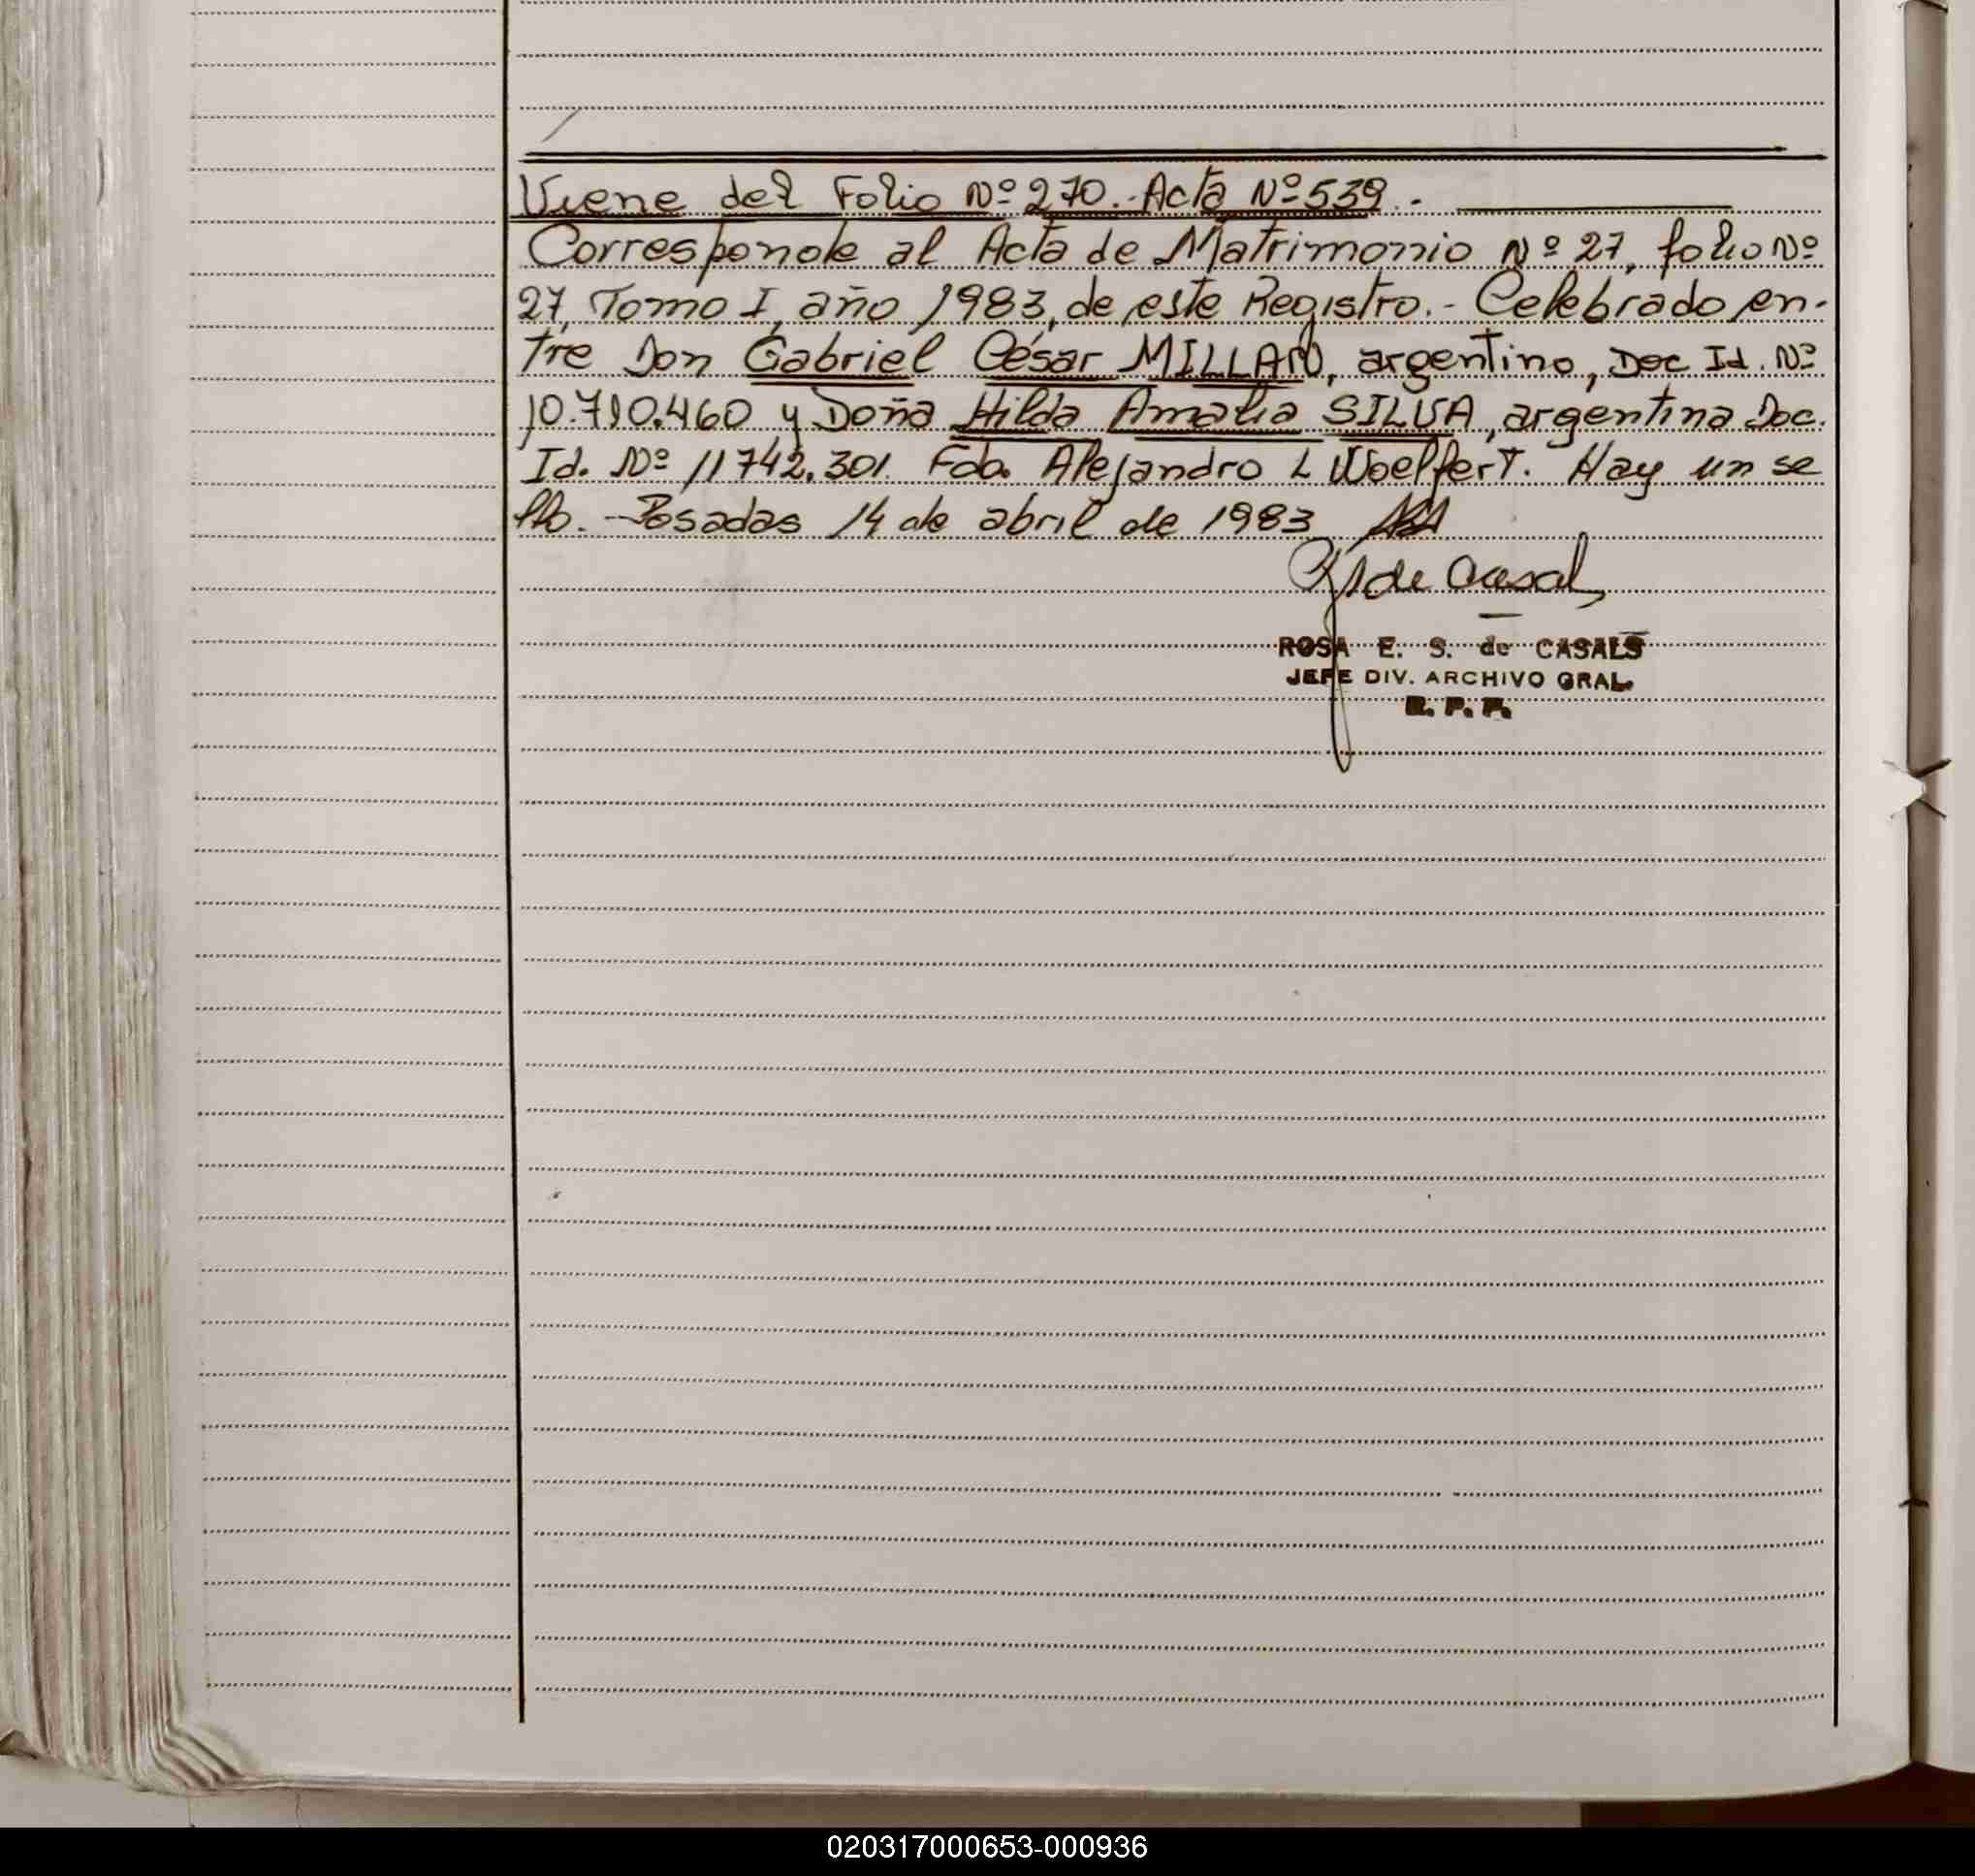 Viene del Folio Nº 270.- Acta Nº 539.-
Corresponde al Acta de Matrimonio Nº 27, folio Nº
27, Tomo I, año 1983, de este Registro.- Celebrado en-
tre Don Gabriel César MILLAN, argentino, Doc Id. Nº
10.790.460 y Doña Hilda Amalia SILVA, argentina Doc.
Id. Nº 11742.301. Fdo. Alejandro L Woelfert. Hay un se
llo.- Posadas 14 de abril de 1983
de Casals
ROSA E. S. de CASALS
JEFE DIV. ARCHIVO GRAL.
R. P. P.
020317000653-000936